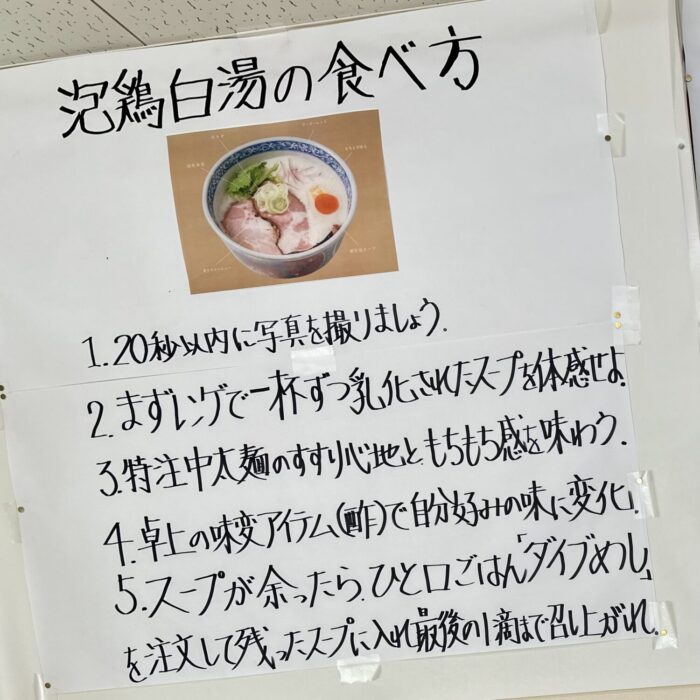 泡鶏白湯の食べ方
1.20秒以内に写真を撮りましょう.
2.まずレンゲで一杯ずつ乳化されたスープを体感せよ.
3.特注中太麺のすすり心地ともちもち感を味わう.
4.卓上の味変アイテム(酢)で自分好みの味に変化.
5.スープが余ったら、ひと口ごはん「ダイブめし」
を注文して残ったスープに入れ最後の1滴まで召し上がれ.